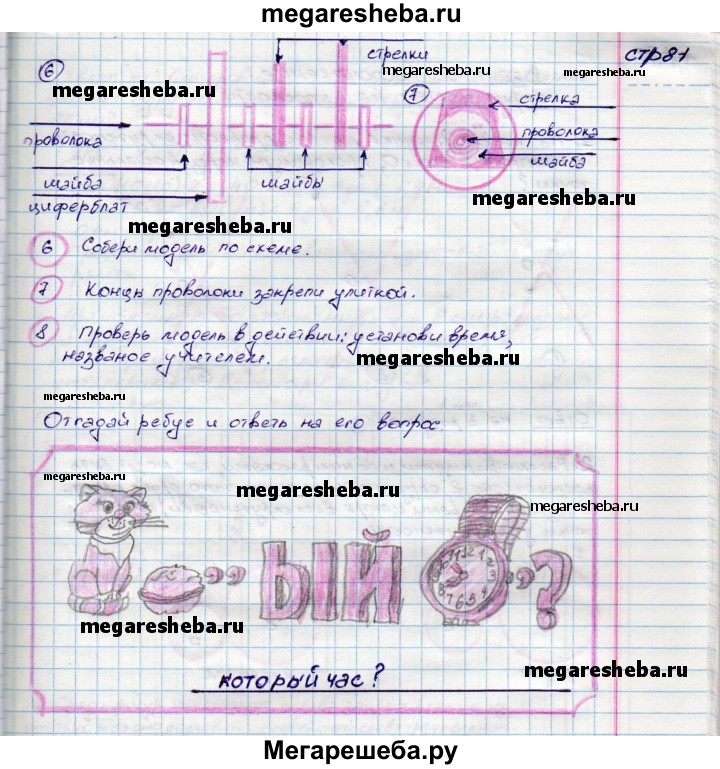 megaresheba.ru
стр 81
стрелки
megaresheba.ru
megaresheba.ru
6
megaresheba.ru
7
стрелка
проволока
проволока
шайба
шайба
шайбы
циферблат
megaresheba.ru
6 Собери модель по схеме.
7 Концы проволоки закрепи улиткой.
8 Проверь модель в действии: установи время,
названое учителем.
megaresheba.ru
megaresheba.ru
Отгадай ребус и ответь на его вопрос.
megaresheba.ru
megaresheba.ru
megaresheba.ru
,, ЫЙ , ?
megaresheba.ru
который час?
megaresheba.ru
Мегарешеба.ру